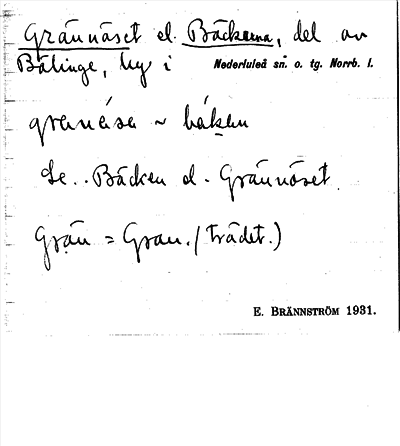 Grännäset el. Bäckarna, del av
Bälinge, by i Nederluleå sn. o. tg. Norrb. l.
grenésa ~ bákan
Se. Bäcken el. Grännäset.
Grän = Gran. (trädet.)
E. BRÄNNSTRÖM 1931.